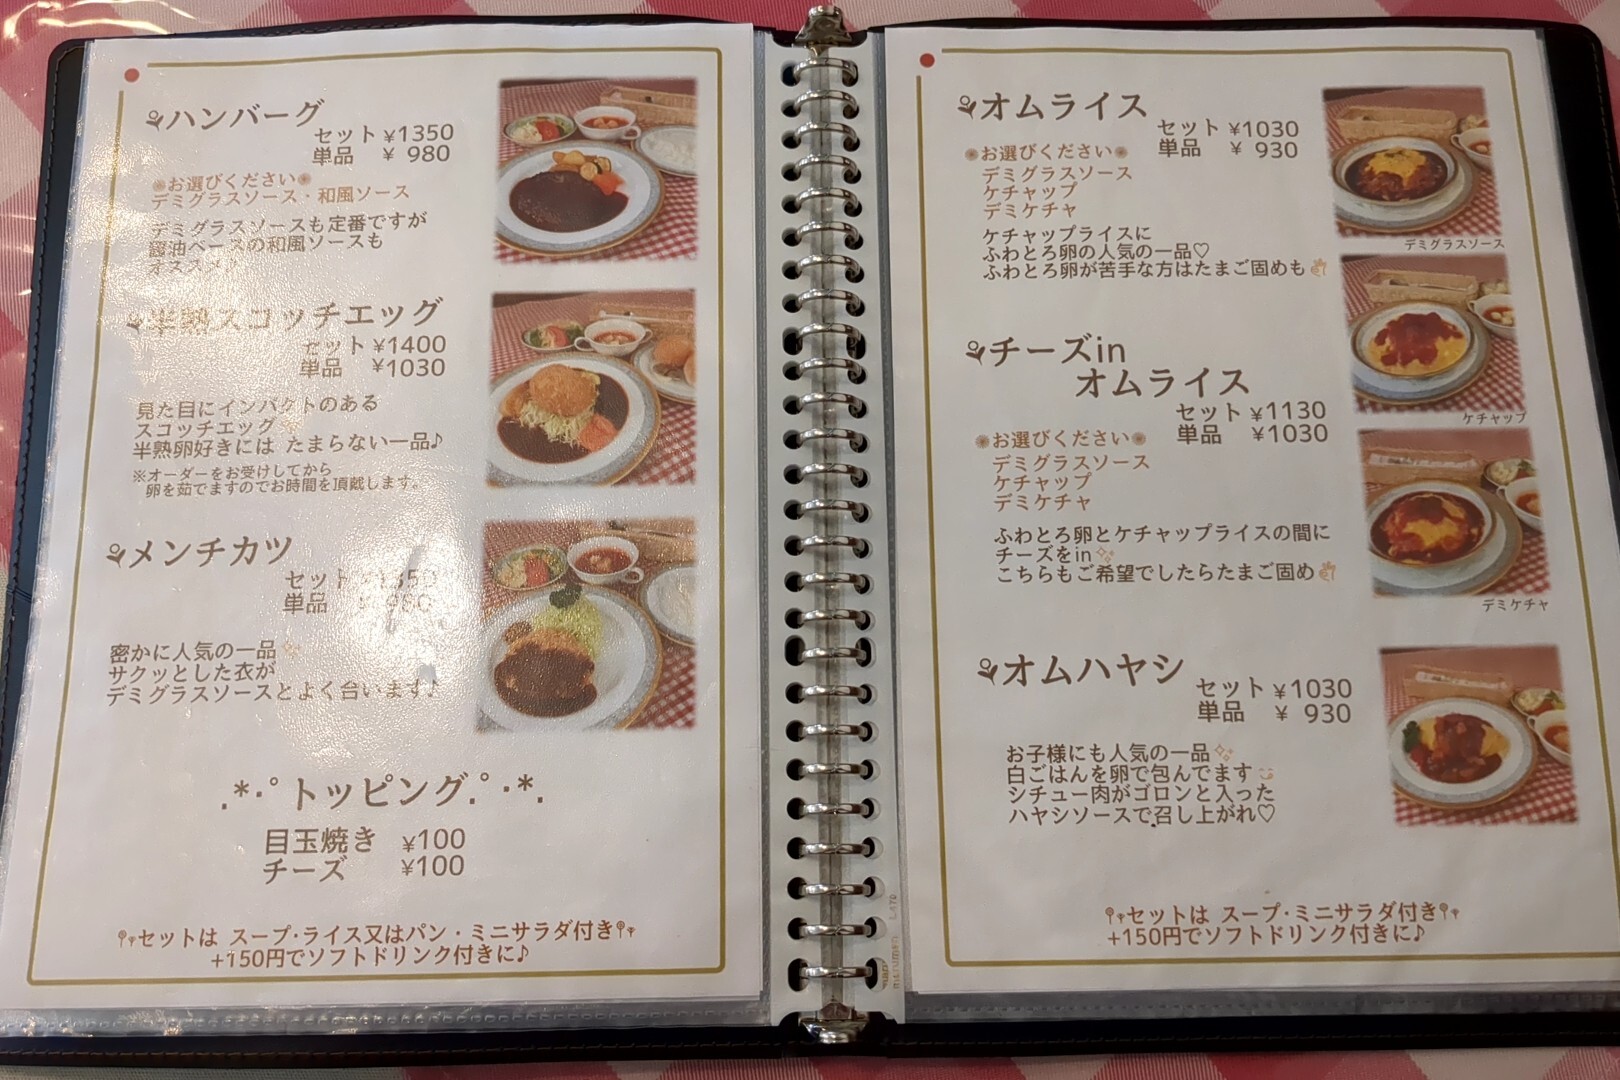 ハンバーグ
セット ¥1350
単品 ¥ 980
お選びください
デミグラスソース・和風ソース
デミグラスソースも定番ですが
醤油ベースの和風ソースも
オススメ♪
半熟スコッチエッグ
セット ¥1400
単品 ¥1030
見た目にインパクトのある
スコッチエッグ
半熟卵好きには たまらない一品♪
※オーダーをお受けしてから
卵を茹でますのでお時間を頂戴します。
メンチカツ
セット ¥1350
単品 ¥ 980
密かに人気の一品✨
サクッとした衣が
デミグラスソースとよく合います♪
.*･ﾟトッピング.ﾟ･*.
目玉焼き ¥100
チーズ ¥100
セットは スープ･ライス又はパン・ミニサラダ付き
+150円でソフトドリンク付きに♪
オムライス
セット ¥1030
単品 ¥ 930
お選びください
デミグラスソース
ケチャップ
デミケチャ
ケチャップライスに
ふわとろ卵の人気の一品♡
ふわとろ卵が苦手な方はたまご固めも
デミグラスソース
ケチャップ
デミケチャ
チーズin
オムライス
セット ¥1130
単品 ¥1030
お選びください
デミグラスソース
ケチャップ
デミケチャ
ふわとろ卵とケチャップライスの間に
チーズをin✨
こちらもご希望でしたらたまご固め
オムハヤシ
セット ¥1030
単品 ¥ 930
お子様にも人気の一品✨
白ごはんを卵で包んでます
シチュー肉がゴロンと入った
ハヤシソースで召し上がれ♡
セットは スープ･ミニサラダ付き
+150円でソフトドリンク付きに♪